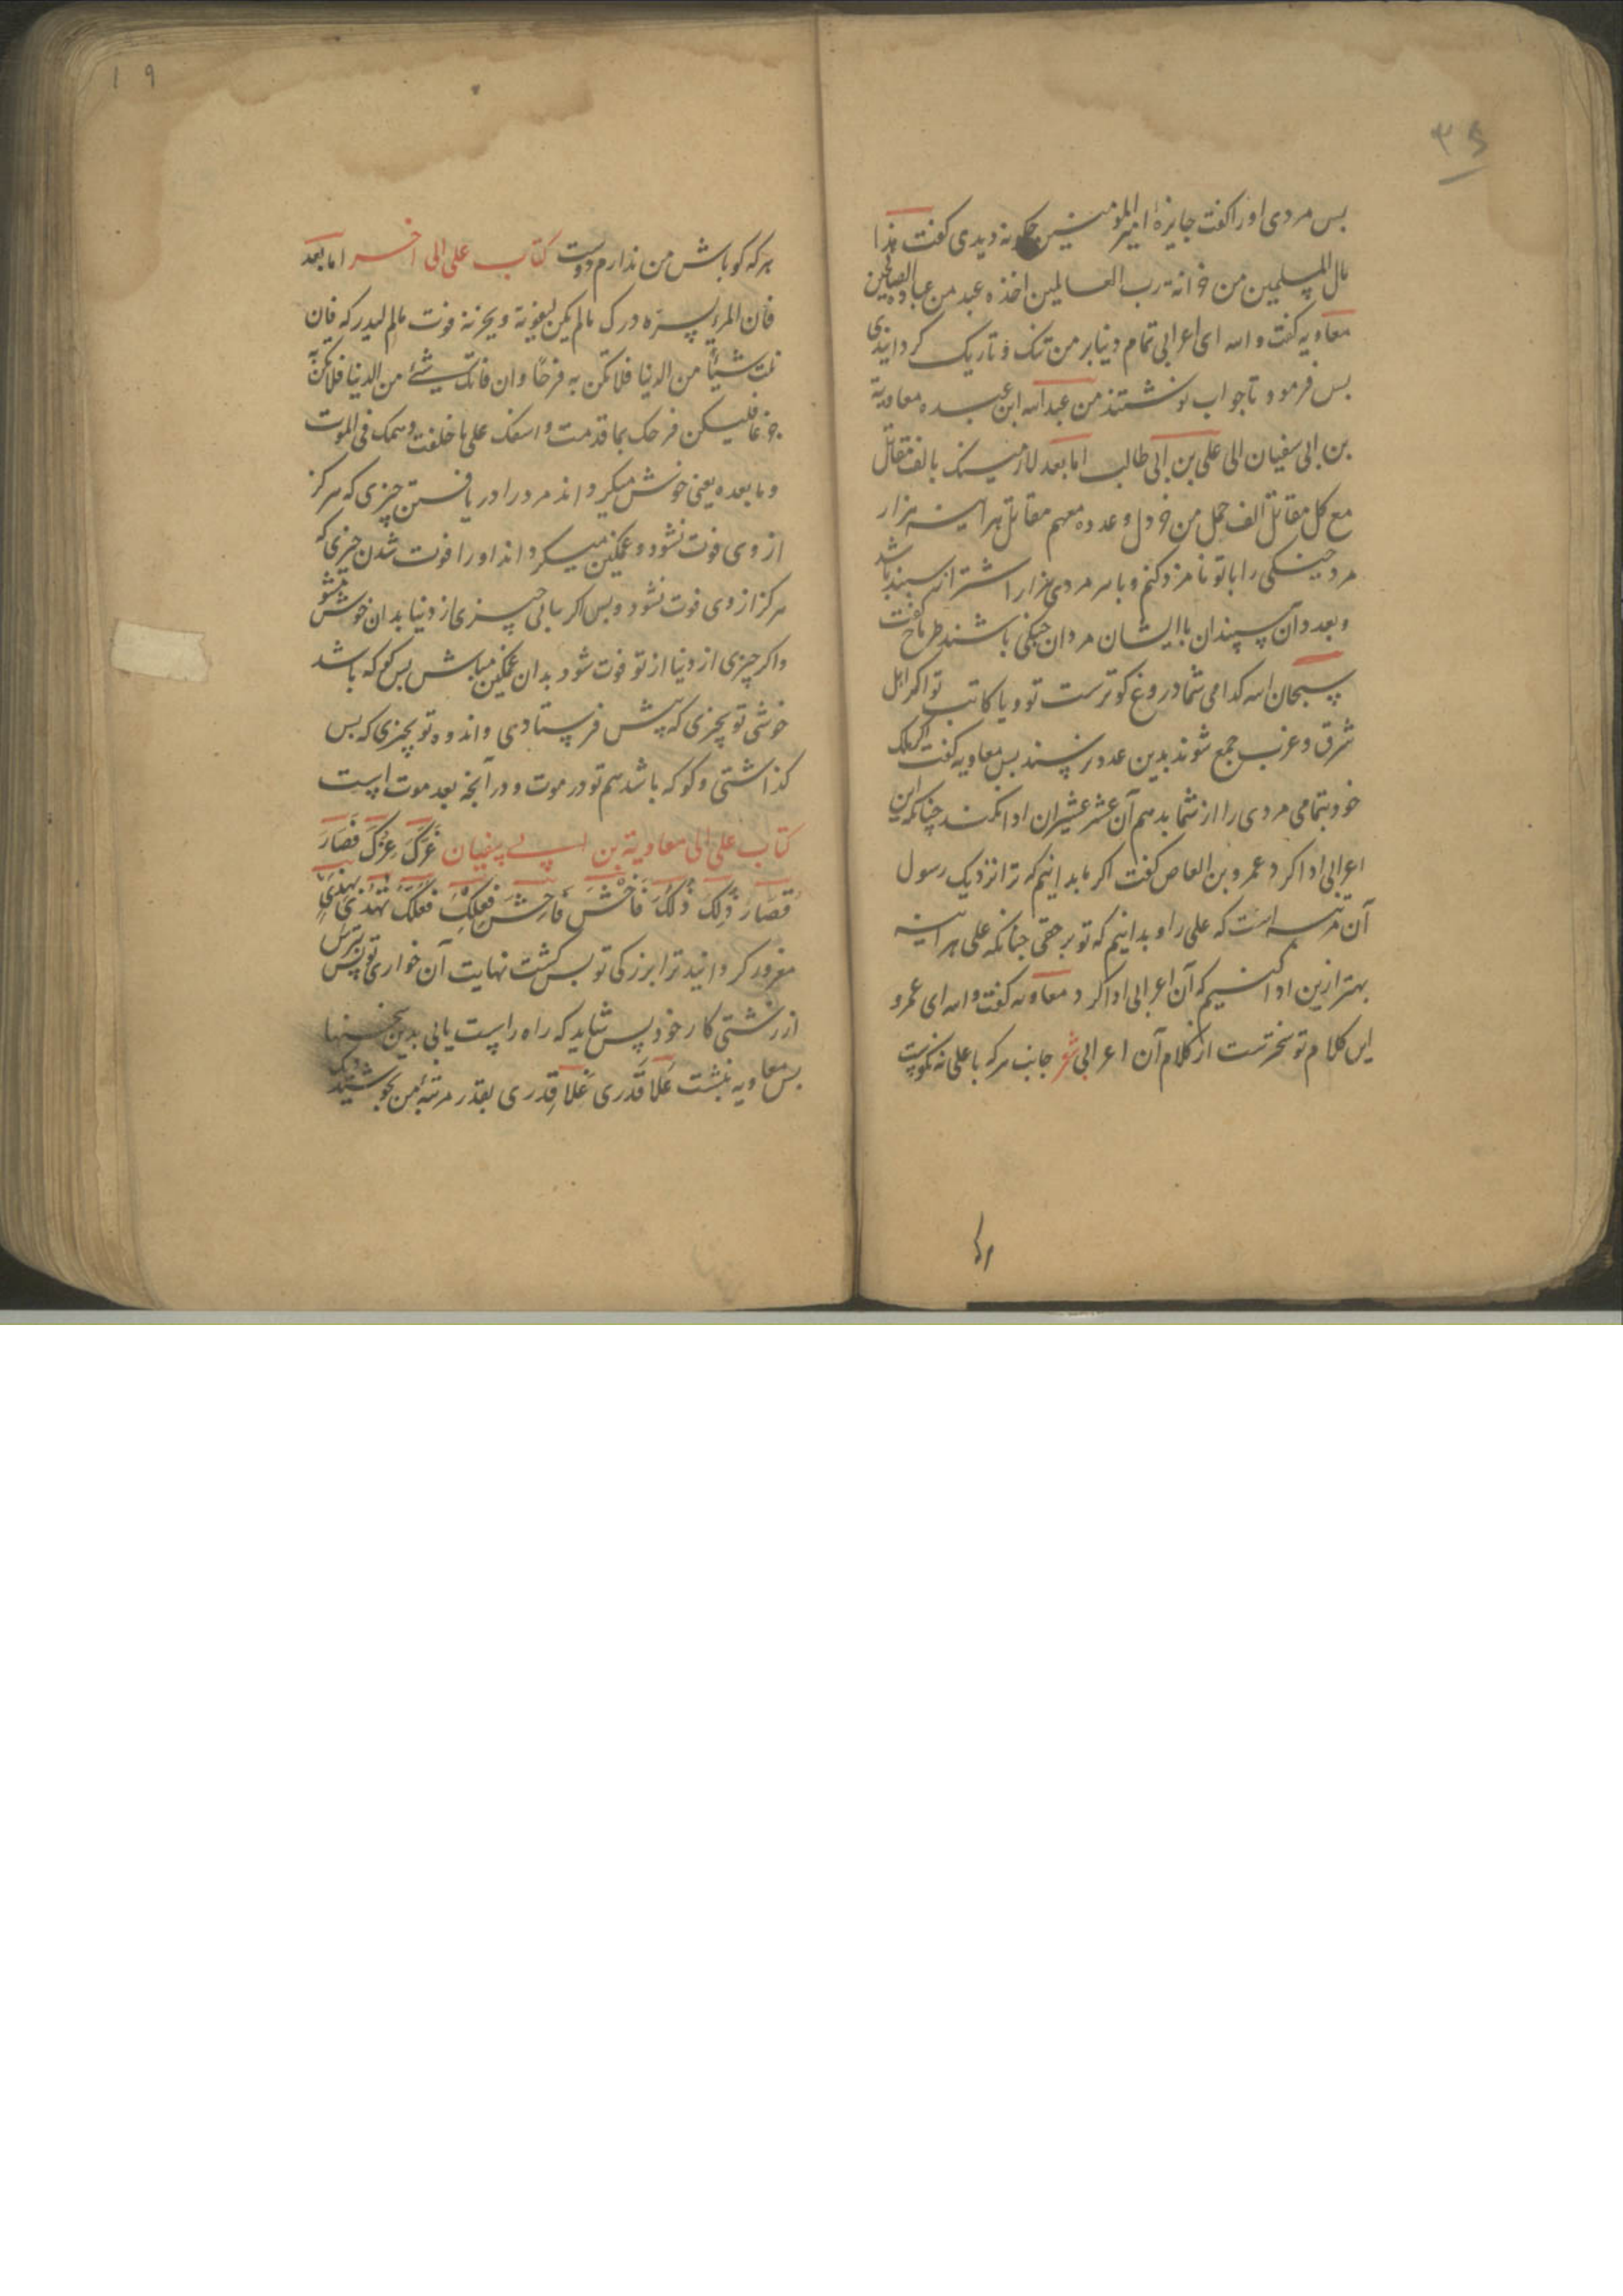 ۳۵
بس مردی اورا کفت جایزهٔ امیر المومنین چکونه دیدی کفت هذا
مال المسلمین من خزانة رب العالمین اخذه عبد من عباده الصالحین
معاویه کفت و اله ای اعرابی تمام دنیا بر من تنک و تاریک کردانیدی
بس فرمود تا جواب نوشتند من عبد اله ابن عبده معاویة
بن ابی سفیان الی علی بن ابی طالب اما بعد لارمینک بالف مقاتل
مع کل مقاتل الف جمل من خردل وعدده معهم مقاتل هر اینه هزار
مرد جنکی را با تو نامزد کنم و با هر مردی هزار اشتر از سپند باشد
و بعدد آن سپندان با ایشان مردان جنکی باشند طرماح کفت
سبحان اله کدامی شما دروغ کوترست تو و یا کاتب تو اکر اهل
شرق و غرب جمع شوند بدین عدد نرسند بس معاویه کفت اکر ملک
خود بتمامی مردی را از شما بدهم آن عشر عشیران ادا نکند چنانکه این
اعرابی ادا کرد عمرو بن العاص کفت اکر ما بدانیم که ترا نزدیک رسول
آن مرتبه است که علی را و بدانیم که تو بر حقی چنانکه علی هر اینه
بهتر ازین ادا کنیم که آن اعرابی ادا کرد معاویه کفت و اله ای عمرو
این کلام تو سخترست از کلام آن اعرابی شعر جانب هرکه با علی نه نکوست
۱۹
هرکه کو باش من ندارم دوست کتاب علی الی اخر اما بعد
فان المرء یسره درک مالم یکن لیفوته ویحزنه فوت مالم لیدرکه فان
نلت شیأ من الدنیا فلا تکن به فرحًا وان فاتک شیٔ من الدنیا فلا تکن به
جزعا فلیکن فرحک بما قدمت واسفک علی ما خلفت وهمک فی الموت
وما بعده یعنی خوش میکرداند مرد را دریافتن چیزی که هرکز
از وی فوت نشود و غمکین میکرداند او را فوت شدن چیزی که
هرکز از وی فوت نشود و بس اکر یابی چیزی از دنیا بدان خوش مشو
واکر چیزی از دنیا از تو فوت شود بدان غمکین مباش بس کو که باشد
خوشی تو بچیزی که پیش فرستادی و اندوه تو بچیزی که بس
کذاشتی و کو که باشد هم تو در موت و در آنچه بعد موت است
کتاب علی الی معاویة بن ابی سفیان غَرَّکَ عِزُّکَ فَصَارَ
قُصَارَ ذٰلِکَ ذُلُّکَ فَاخْشَ فَاحِشَ فِعْلِکَ فَعَلَّکَ تُهْدٰی بِهٰذٰی
مغرور کردانید ترا بزرکی تو بس کشت نهایت آن خواری تو بس بترس
از زشتی کار خود پس شاید که راه راست یابی بدین سخنها
بس معاویه نبشت عَلَا قَدْرِی غَلَا قِدْرِی بقدر مرتبهٔ من بجوشید دیک